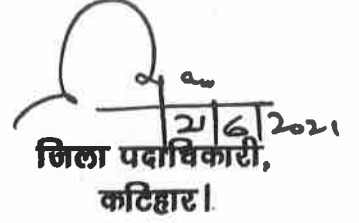 21/6/2021
जिला पदाधिकारी,
कटिहार।